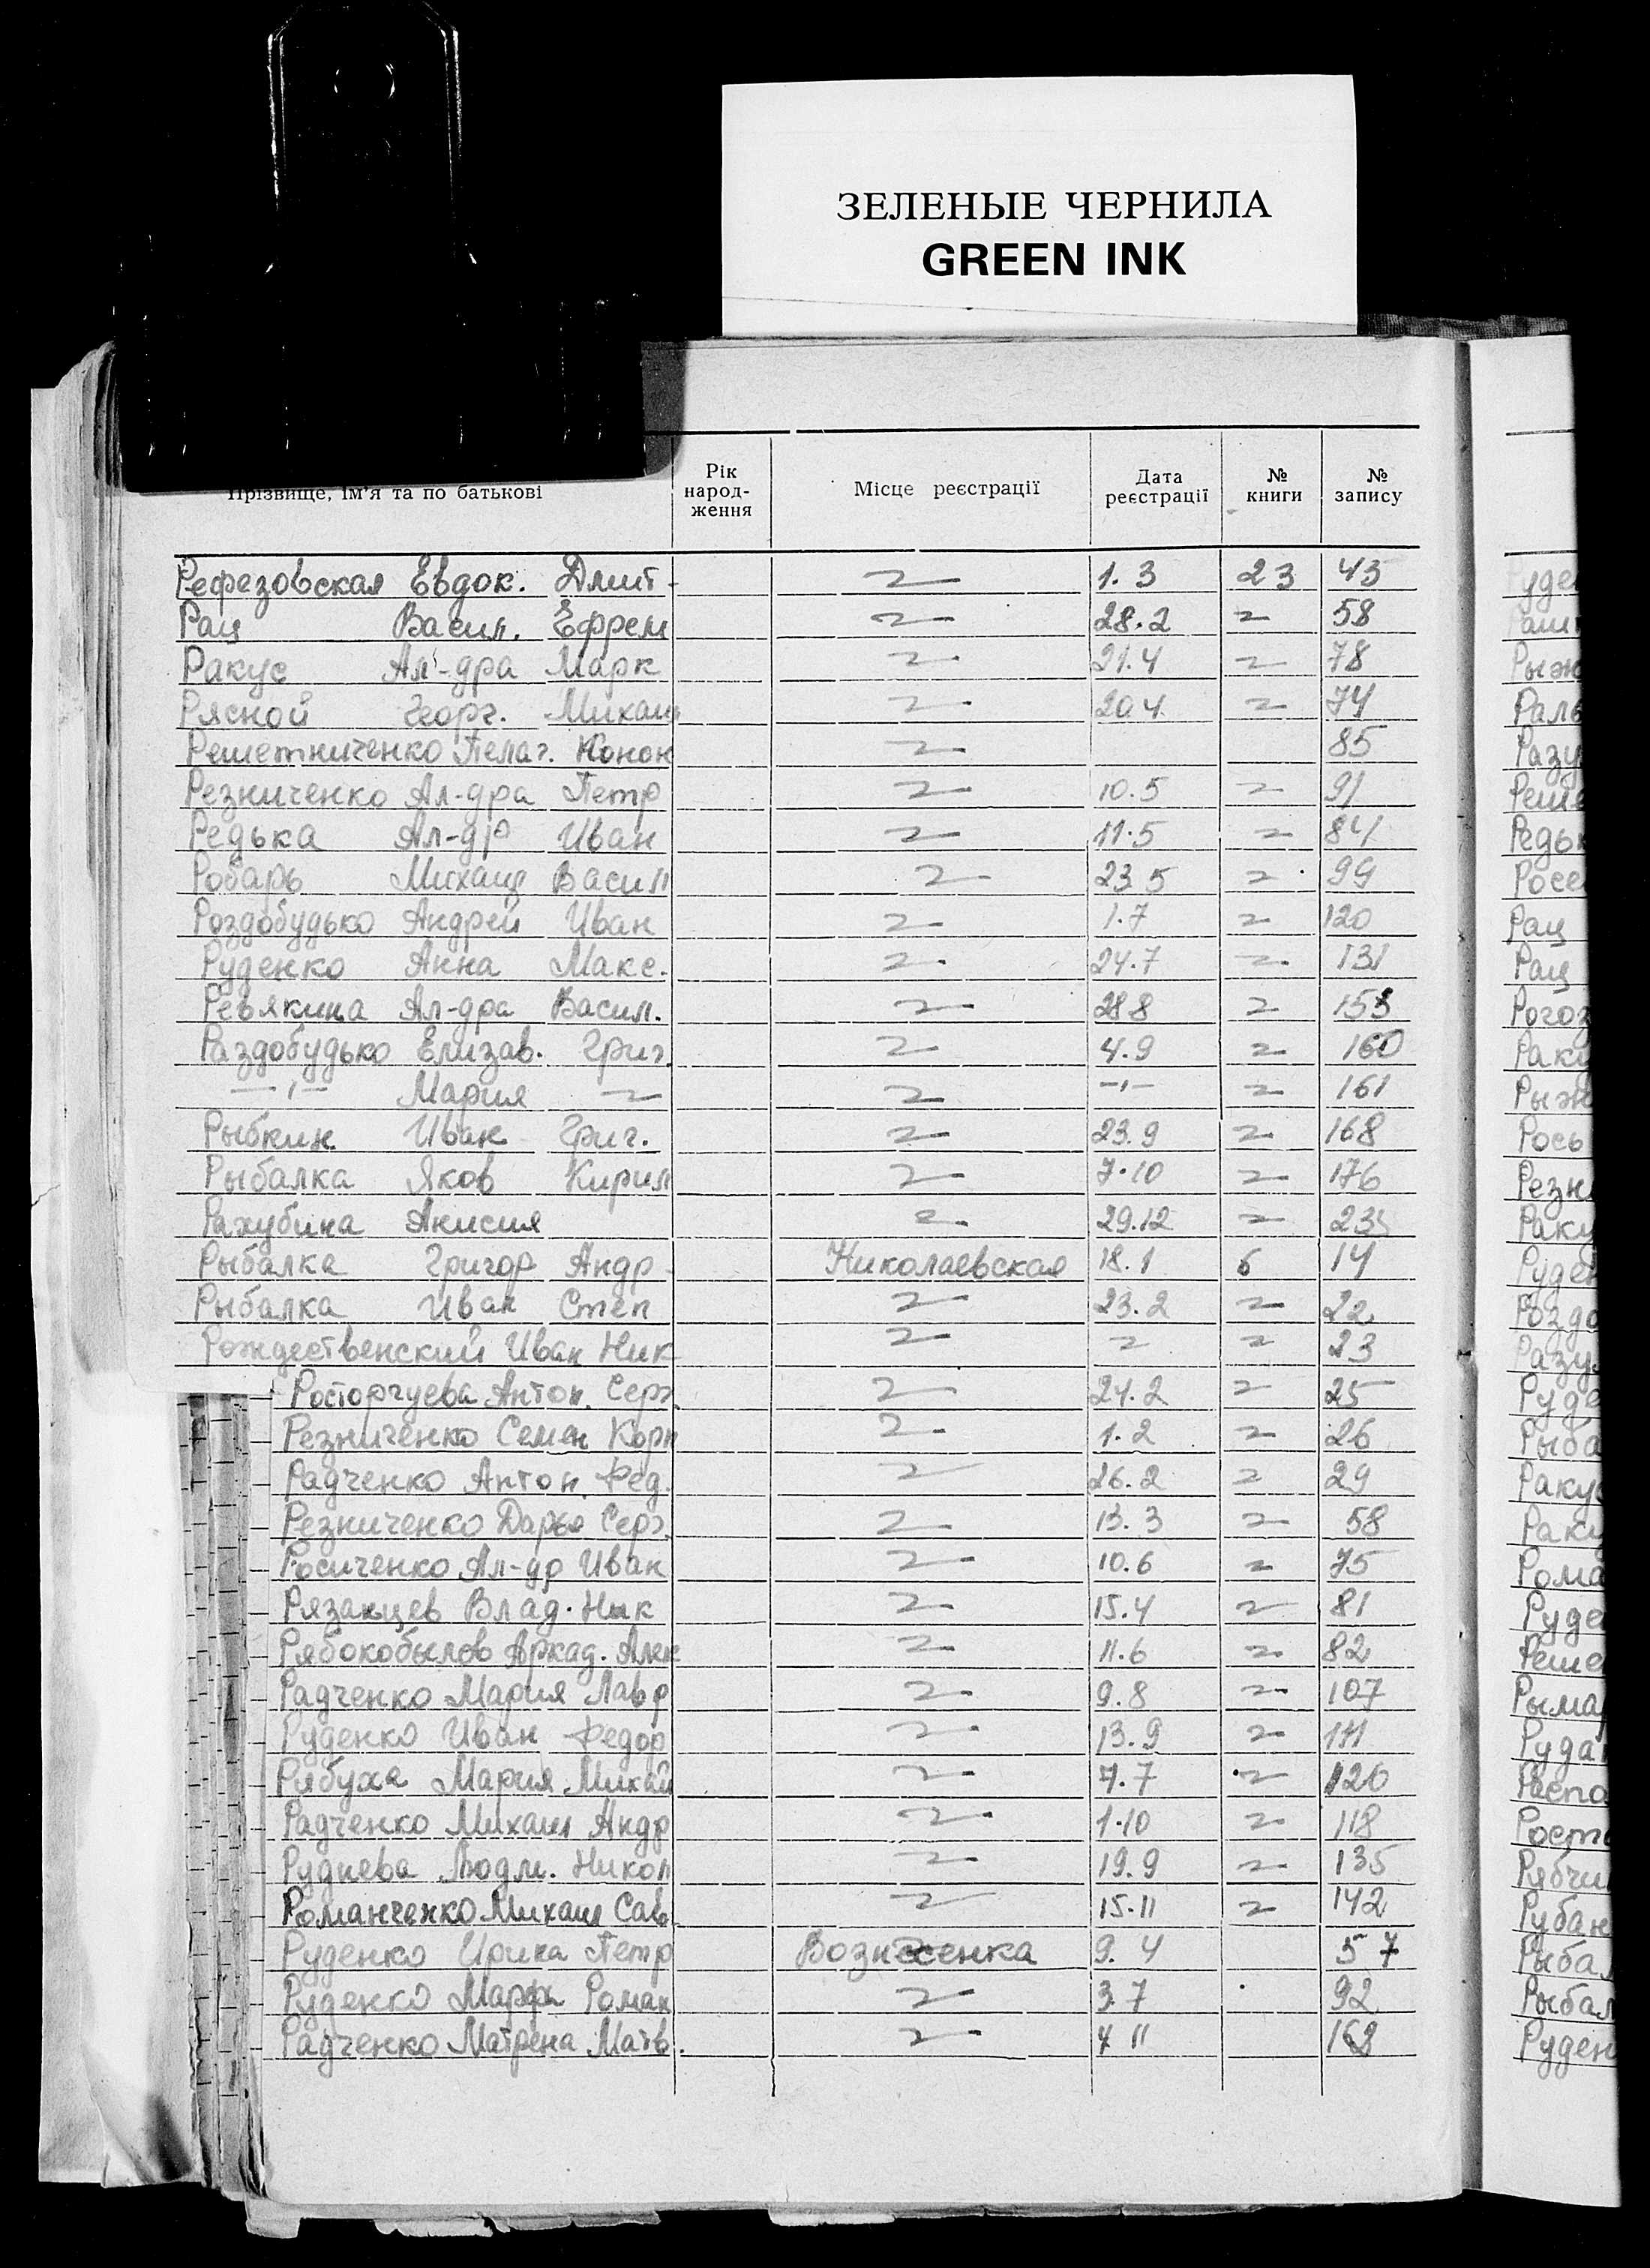 ЗЕЛЕНЫЕ ЧЕРНИЛА
GREEN INK
Прізвище, ім'я та по батькові
Рік народ-ження
Місце реєстрації
Дата реєстрації
№ книги
№ запису
Рефезовская Евдок. Дмит- 1.3 23 43
Рац Васил. Ефрем 28.2 58
Ракус Ал-дра Марк 21.4 78
Рясной Георг. Михаил 20.4 74
Решетниченко Пелаг. Конон 85
Резниченко Ал-дра Петр 10.5 91
Редька Ал-др Иван 11.5 84
Робарь Михаил Васил 23.5 99
Роздобудько Андрей Иван 1.7 120
Руденко Анна Макс. 24.7 131
Ревякина Ал-дра Васил. 28.8 153
Раздобудько Елизав. Григ. 4.9 160
—"— Мария —"— 161
Рыбкин Иван Григ. 23.9 168
Рыбалка Яков Кирил 7.10 176
Рахубина Анисия 29.12
Рыбалка Григор Андр- Николаевская 18.1 6 14
Рыбалка Иван Степ 23.2 22
Рождественский Иван Ник 23
Росторгуева Антон. Серг. 24.2 25
Резниченко Семен Корн 1.2 26
Радченко Антон. Фед. 26.2 29
Резниченко Дарья Серг. 13.3 58
Росиченко Ал-др Иван 10.6 75
Рязанцев Влад. Ник 15.4 81
Рябокобылов Аркад. Алек 11.6 82
Радченко Мария Лавр 9.8 107
Руденко Иван Федор 13.9 111
Рябуха Мария Михай 7.7 120
Радченко Михаил Андр 1.10 118
Руднева Людм. Никол 19.9 135
Романченко Михаил Сав 15.11 142
Руденко Ирина Петр Вознесенка 9.4 57
Руденко Марфа Роман 3.7 92
Радченко Матрена Матв. 4 11 162
Рац
Рац
Рось